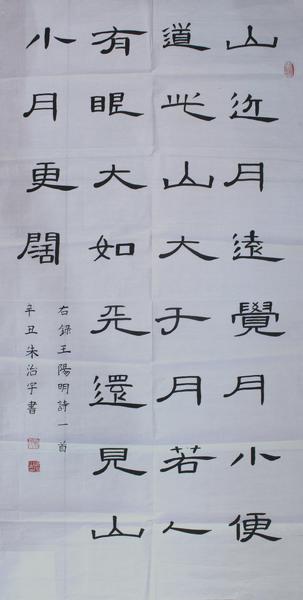 山近月遠覺月小便
道此山大于月若人
有眼大如天還見山
小月更闊
右錄王陽明詩一首
辛丑朱治宇書